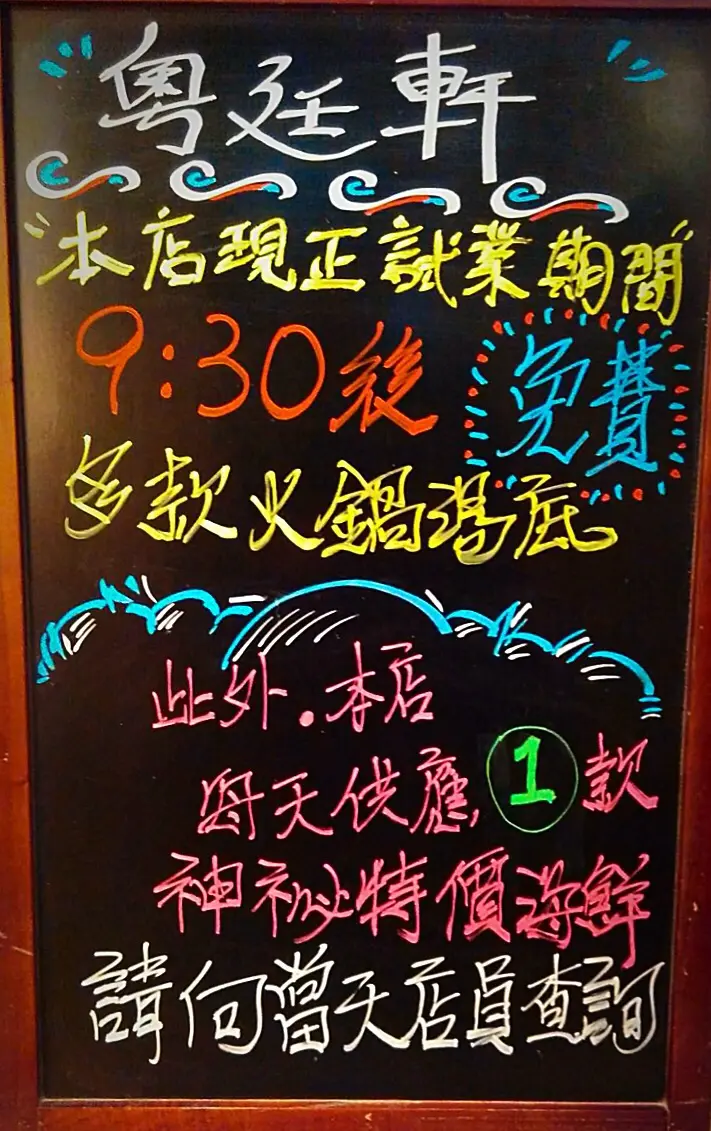 粵廷軒
"本店現正試業期間"
9:30後 免費
多款火鍋湯底
此外.本店
每天供應 1 款
神祕特價海鮮
請向當天店員查詢